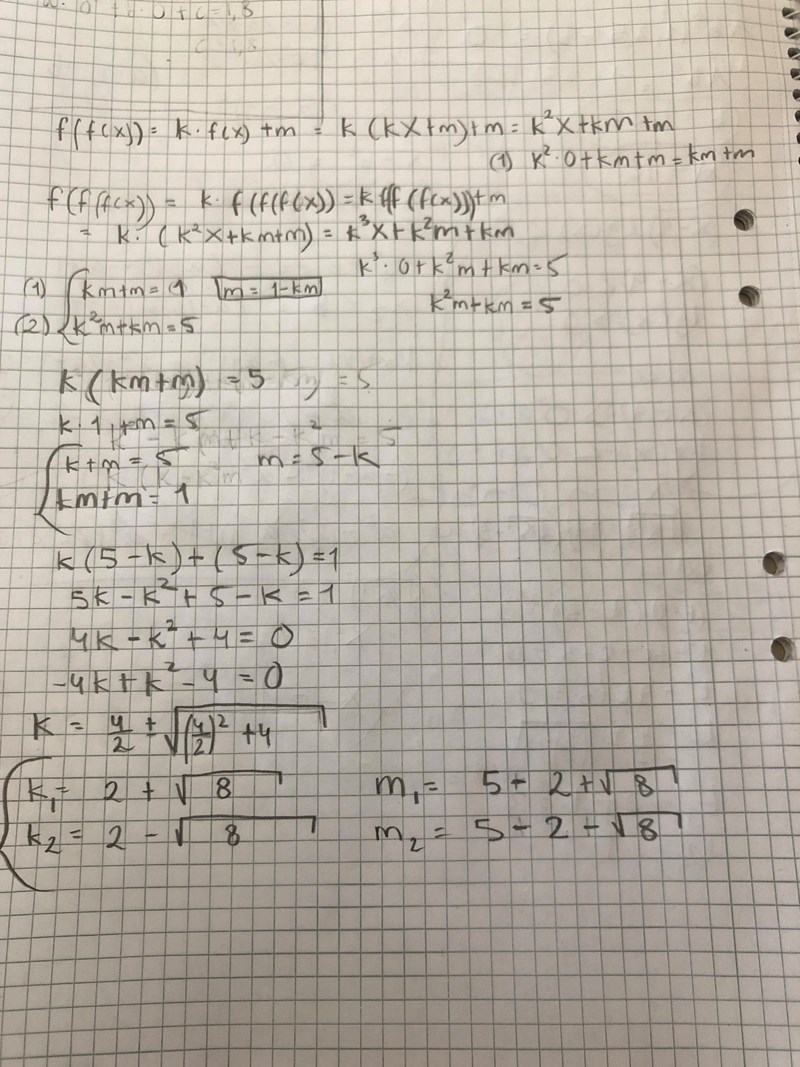 f(f(x)) = k · f(x) + m = k (kx+m)+m = k²x+km +m
(1) k² · 0 + km + m = km + m
f(f(f(x)) = k · f(f(f(x)) = k (f(f(x))) + m
= k · (k²x+km+m) = k³x + k²m + km
k³ · 0 + k²m + km = 5
(1) km+m = 1 m = 1-km
k²m + km = 5
(2) k²m+km = 5
k (km+m) = 5 = 5
k · 1 + m = 5
k+m = 5 m = 5-k
km+m = 1
k(5-k)+(5-k)=1
5k - k² + 5 - k = 1
4k - k² + 4 = 0
-4k + k² - 4 = 0
k = 4/2 ± √(4/2)² + 4
k₁ = 2 + √8 m₁ = 5 - 2 + √8
k₂ = 2 - √8 m₂ = 5 - 2 - √8